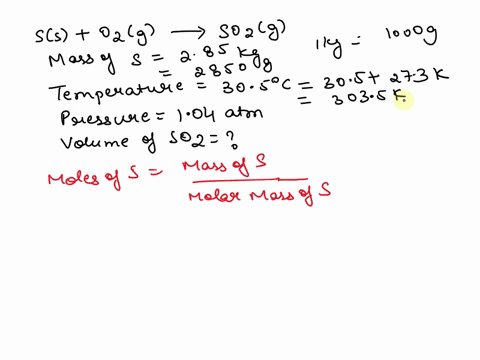 S(s) + O2(g) → SO2(g)
1kg = 1000g
Mass of S = 2.85 kg
= 2850 g
Temperature = 30.5°C = 30.5 + 273 K
= 303.5 K
Pressure = 1.04 atm
Volume of SO2 = ?
Moles of S = Mass of S
Molar Mass of S